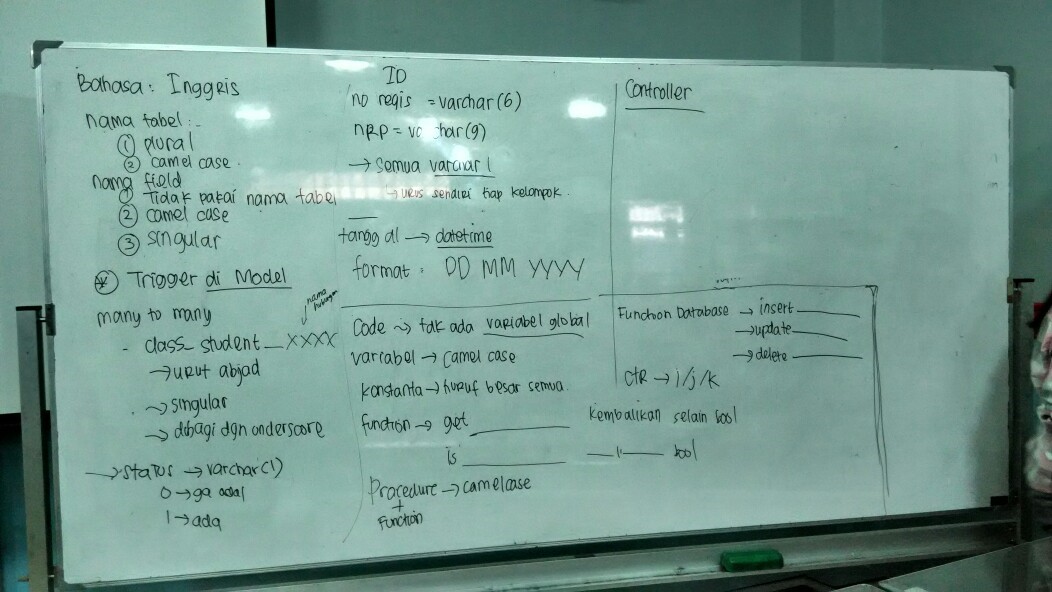 Bahasa: Inggris
nama tabel :-
① plural
② camel case.
nama field
① Tidak pakai nama tabel
② camel case
③ singular
Trigger di Model
many to many
nama hubungan
- class_student_XXXX
→ urut abjad
→ singular
→ dibagi dgn underscore
→ status → varchar(1)
0 → ga ada
1 → ada
ID
no regis = varchar(6)
nrp = varchar(9)
→ semua varchar
↳ urus sendiri tiap kelompok.
tanggal → datetime
format : DD MM YYYY
Code → tdk ada variabel global
variabel → camel case
konstanta → huruf besar semua.
function → get ______ kembalikan selain bool
is ______ —〃— bool
Procedure → camelcase
+
Function
Controller
Function Database → insert ______
→ update ______
→ delete ______
ctr → i/j/k